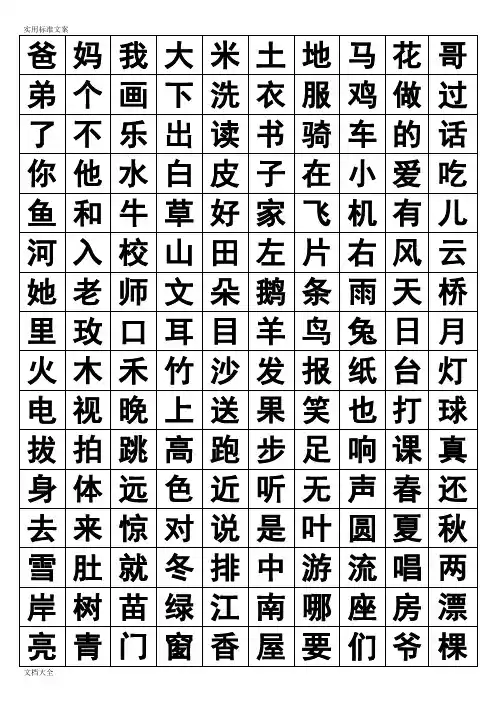 实用标准文案
爸 妈 我 大 米 土 地 马 花 哥
弟 个 画 下 洗 衣 服 鸡 做 过
了 不 乐 出 读 书 骑 车 的 话
你 他 水 白 皮 子 在 小 爱 吃
鱼 和 牛 草 好 家 飞 机 有 儿
河 入 校 山 田 左 片 右 风 云
她 老 师 文 朵 鹅 条 雨 天 桥
里 玫 口 耳 目 羊 鸟 兔 日 月
火 木 禾 竹 沙 发 报 纸 台 灯
电 视 晚 上 送 果 笑 也 打 球
拔 拍 跳 高 跑 步 足 响 课 真
身 体 远 色 近 听 无 声 春 还
去 来 惊 对 说 是 叶 圆 夏 秋
雪 肚 就 冬 排 中 游 流 唱 两
岸 树 苗 绿 江 南 哪 座 房 漂
亮 青 门 窗 香 屋 要 们 爷 棵
文档大全